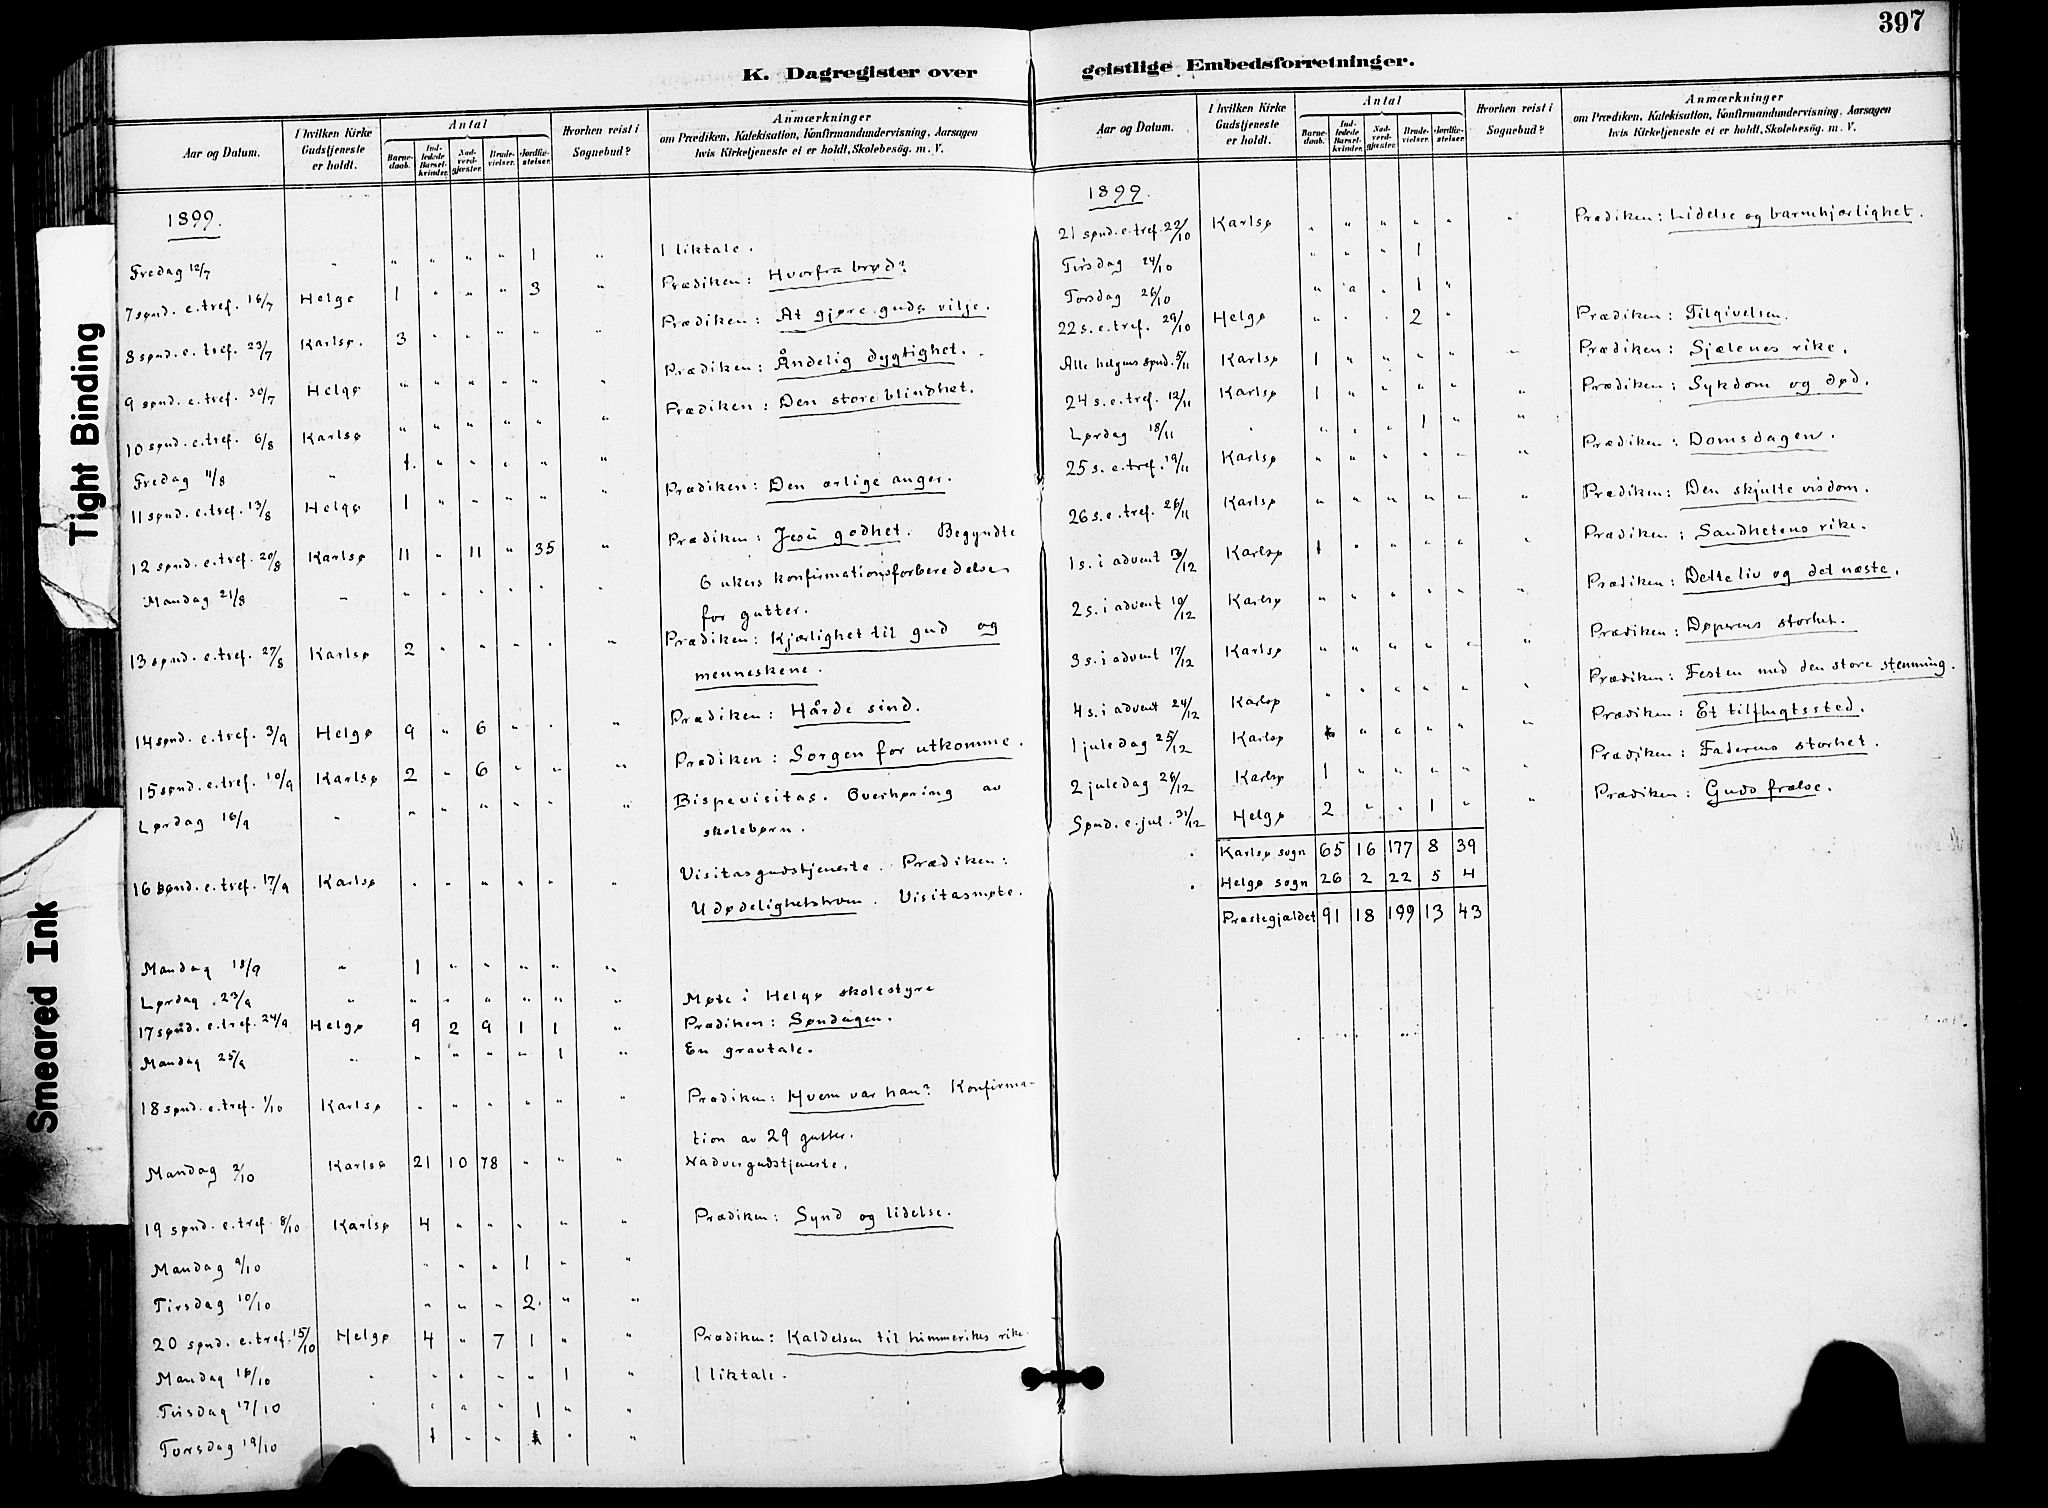 397
K. Dagregister over geistlige Embedsforretninger.
Tight Binding
Smeared Ink
Aar og Datum. I hvilken Kirke Gudstjeneste er holdt. Antal Barne-daab. Ind-ledede Barsel-kvinder. Nad-verd-gjæster. Brude-vielser. Jordfæ-stelser. Hvorhen reist i Sognebud? Anmærkninger om Prædiken, Katekisation, Konfirmandundervisning, Aarsagen hvis Kirketjeneste ei er holdt, Skolebesög. m. V.
1899.
Fredag 12/7 " " " " " 1 " 1 liktale.
7 sønd. e. tref. 16/7 Helgø 1 " " " 3 " Prædiken: Hvorfra brød?
8 sønd. e. tref. 23/7 Karlsø. 3 " " " " " Prædiken: At gjøre guds vilje.
9 sønd. e. tref. 30/7 Helgø " " " " " " Prædiken: Åndelig dygtighet.
10 sønd. e. tref. 6/8 Karlsø " " " " " " Prædiken: Den store blindhet.
Fredag 11/8 " 1. " " " " "
11 sønd. e. tref. 13/8 Helgø 1 " " " " " Prædiken: Den ærlige anger.
12 sønd. e. tref. 20/8 Karlsø 11 " 11 " 35 " Prædiken: Jesu godhet. Begyndte
Mandag 21/8 " " " " " " " 6 ukers konfirmationsforberedelse
for gutter.
13 sønd. e. tref. 27/8 Karlsø 2 " " " " " Prædiken: Kjærlighet til gud og
menneskene.
14 sønd. e. tref. 3/9 Helgø 9 " 6 " " " Prædiken: Hårde sind.
15 sønd. e. tref. 10/9 Karlsø 2 " 6 " " " Prædiken: Sorgen for utkomme.
Lørdag 16/9 " " " " " " " Bispevisitas. Overhøring av
skolebørn.
16 sønd. e. tref. 17/9 Karlsø " " " " " " Visitasgudstjeneste. Prædiken:
Udødelighetstroen. Visitasmøte.
Mandag 18/9 " 1 " " " " "
Lørdag 23/9 " " " " " " " Møte i Helgø skolestyre
17 sønd. e. tref. 24/9 Helgø 9 2 9 1 1 " Prædiken: Søndagen.
Mandag 25/9 " " " " " 1 " En gravtale.
18 sønd. e. tref. 1/10 Karlsø " " " " " " Prædiken: Hvem var han? Konfirma-
tion av 29 gutter.
Mandag 2/10 Karlsø 21 10 78 " " " Nadvergudstjeneste.
19 sønd. e. tref. 8/10 Karlsø 4 " " " " " Prædiken: Synd og lidelse.
Mandag 9/10 " " " 1 " "
Tirsdag 10/10 " " " 2. " "
20 sønd. e. tref. 15/10 Helgø 4 " 7 1 " " Prædiken: Kaldelsen til himmerikes rike.
Mandag 16/10 " " " " " 1 " 1 liktale.
Tirsdag 17/10 " " " " 1 " "
Torsdag 19/10 1 " " " "
Aar og Datum. I hvilken Kirke Gudstjeneste er holdt. Antal Barne-daab. Ind-ledede Barsel-kvinder. Nad-verd-gjæster. Brude-vielser. Jordfæ-stelser. Hvorhen reist i Sognebud? Anmærkninger om Prædiken, Katekisation, Konfirmandundervisning, Aarsagen hvis Kirketjeneste ei er holdt, Skolebesög. m. V.
1899.
21 sønd. e. tref. 22/10 Karlsø " " " " " " Prædiken: Lidelse og barnkjærlighet.
Tirsdag 24/10 " " " 1
Torsdag 26/10 " " " 1 "
22 s. e. tref. 29/10 Helgø " " " 2 " Prædiken: Tilgivelsen.
Alle helgens sønd. 5/11 Karlsø 1 " " " " " Prædiken: Sjælenes rike.
24 s. e. tref. 12/11 Karlsø 1 " " " " " Prædiken: Sykdom og død.
Lørdag 18/11 " " " " 1 " "
25 s. e. tref. 19/11 Karlsø " " " " " " Prædiken: Domsdagen.
26 s. e. tref. 26/11 Karlsø " " " " " " Prædiken: Den skjulte visdom.
1 s. i advent 3/12 Karlsø 1 " " " " " Prædiken: Sandhetens rike.
2 s. i advent 10/12 Karlsø " " " " " " Prædiken: Dette liv og det næste.
3 s. i advent 17/12 Karlsø " " " " " " Prædiken: Døperens storhet.
4 s. i advent 24/12 Karlsø " " " " " " Prædiken: Festen med den store stemning.
1 juledag 25/12 Karlsø " " " " " Prædiken: Et tilflugtssted.
2 juledag 26/12 Karlsø 1 " " " " " Prædiken: Faderens storhet.
Sønd. e. jul. 31/12 Helgø 2 " " 1 " " Prædiken: Guds frelse.
Karlsø sogn 65 16 177 8 39
Helgø sogn 26 2 22 5 4
Præstegjældet 91 18 199 13 43